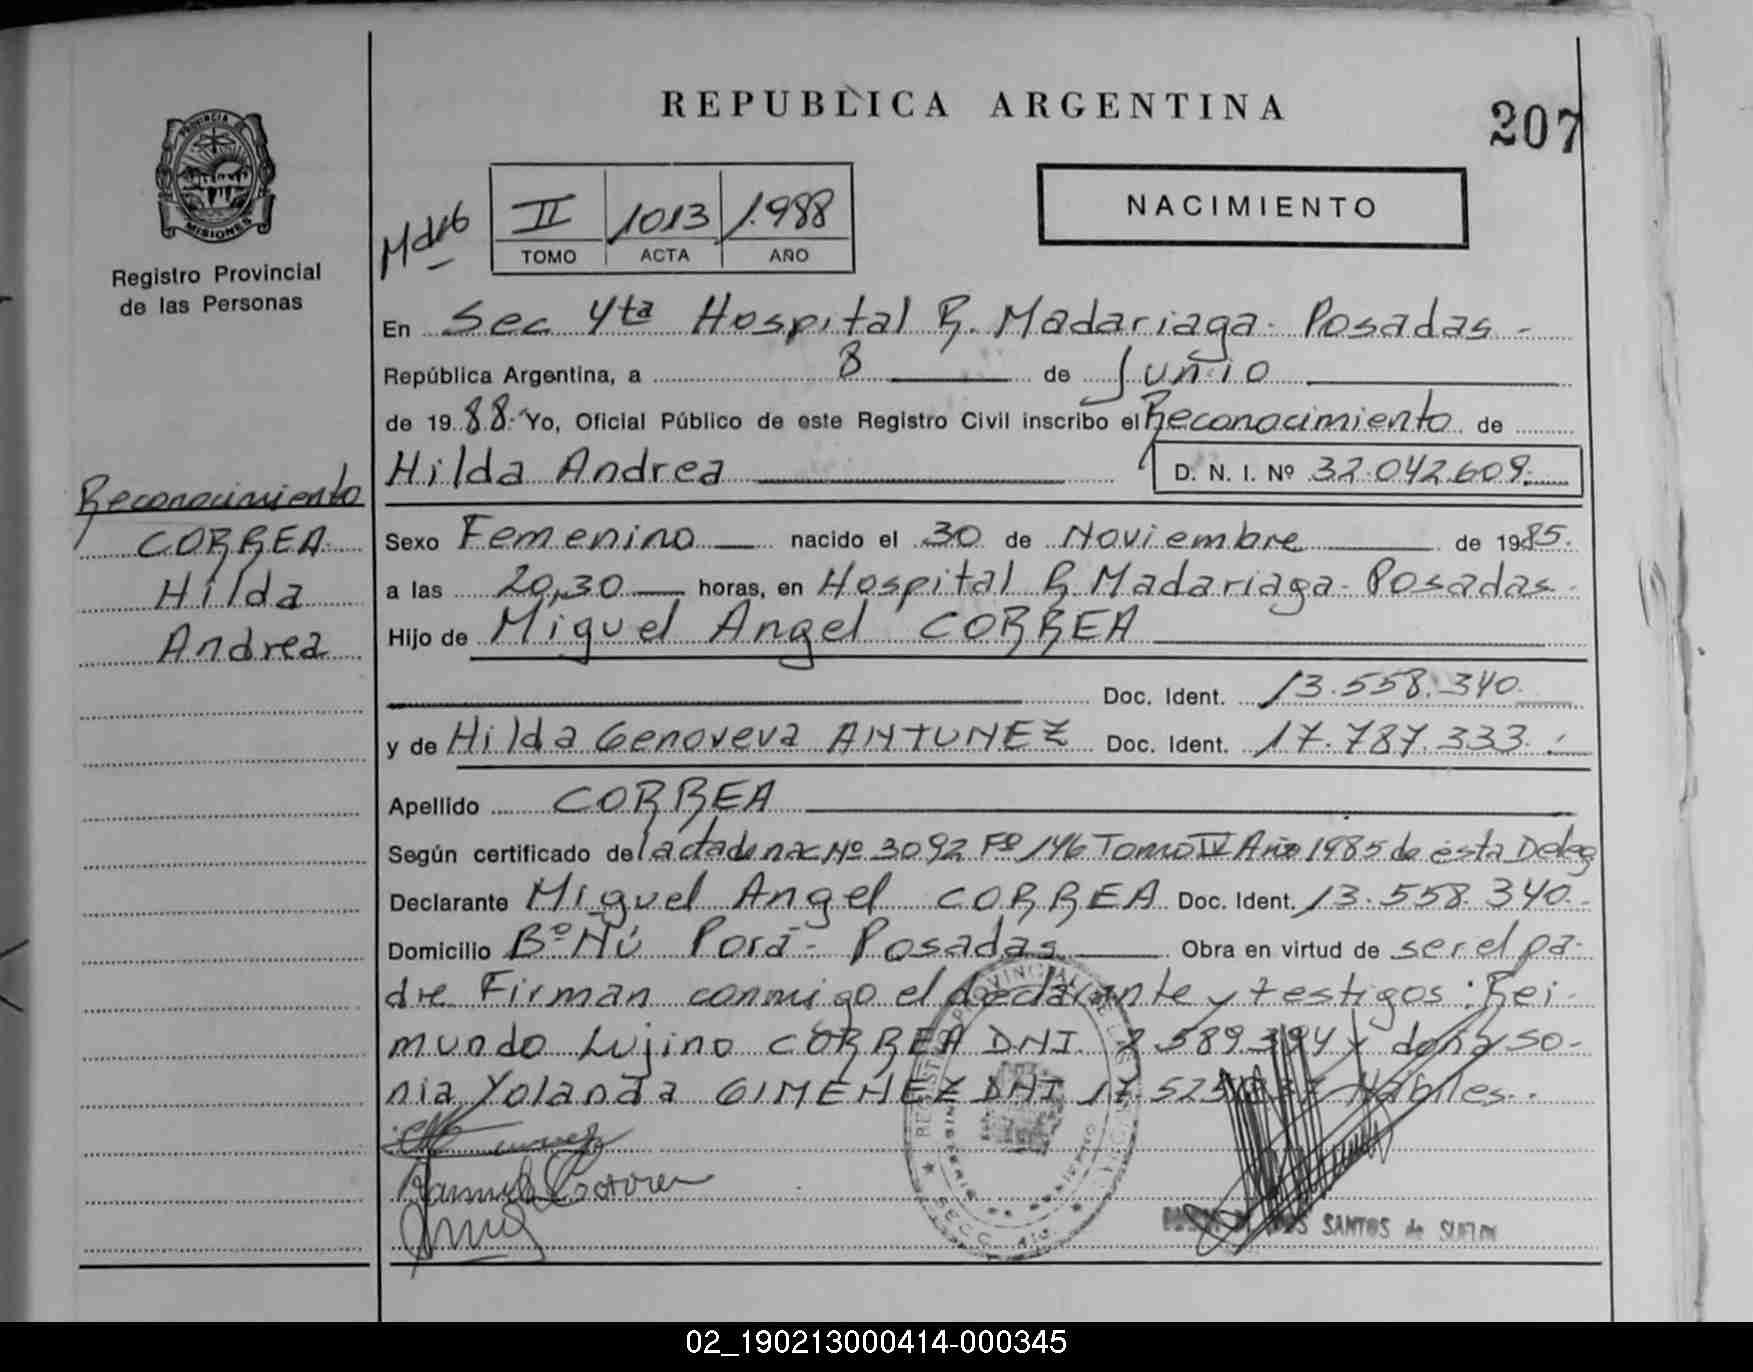 REPUBLICA ARGENTINA
207
PROVINCIA DE
MISIONES
Registro Provincial
de las Personas
II 1013 1.988
TOMO ACTA AÑO
NACIMIENTO
En Sec 4ta Hospital R. Madariaga - Posadas -
República Argentina, a 8 de Juñio
de 1988. Yo, Oficial Público de este Registro Civil inscribo el Reconocimiento de
Hilda Andrea D. N. I. Nº 32.042.609.
Reconocimiento
CORREA
Hilda
Andrea
Sexo Femenino nacido el 30 de Noviembre de 1985.
a las 20,30 horas, en Hospital R. Madariaga - Posadas -
Hijo de Miguel Angel CORREA
Doc. Ident. 13.558.340
y de Hilda Genoveva ANTUNEZ Doc. Ident. 17.787.333.
Apellido CORREA
Según certificado de la acta de nac Nº 3092 Fº 146 Tomo IV Año 1985 de esta Deleg
Declarante Miguel Angel CORREA Doc. Ident. 13.558.340.-
Domicilio Bº Ñú Porá - Posadas Obra en virtud de ser el pa-
dre Firman conmigo el declarante y testigos: Rei-
mundo Lujino CORREA DNI. 7.589.394 y doña So-
nia Yolanda GIMENEZ DNI 17.525 Hábiles.
SANTOS de
02_190213000414-000345